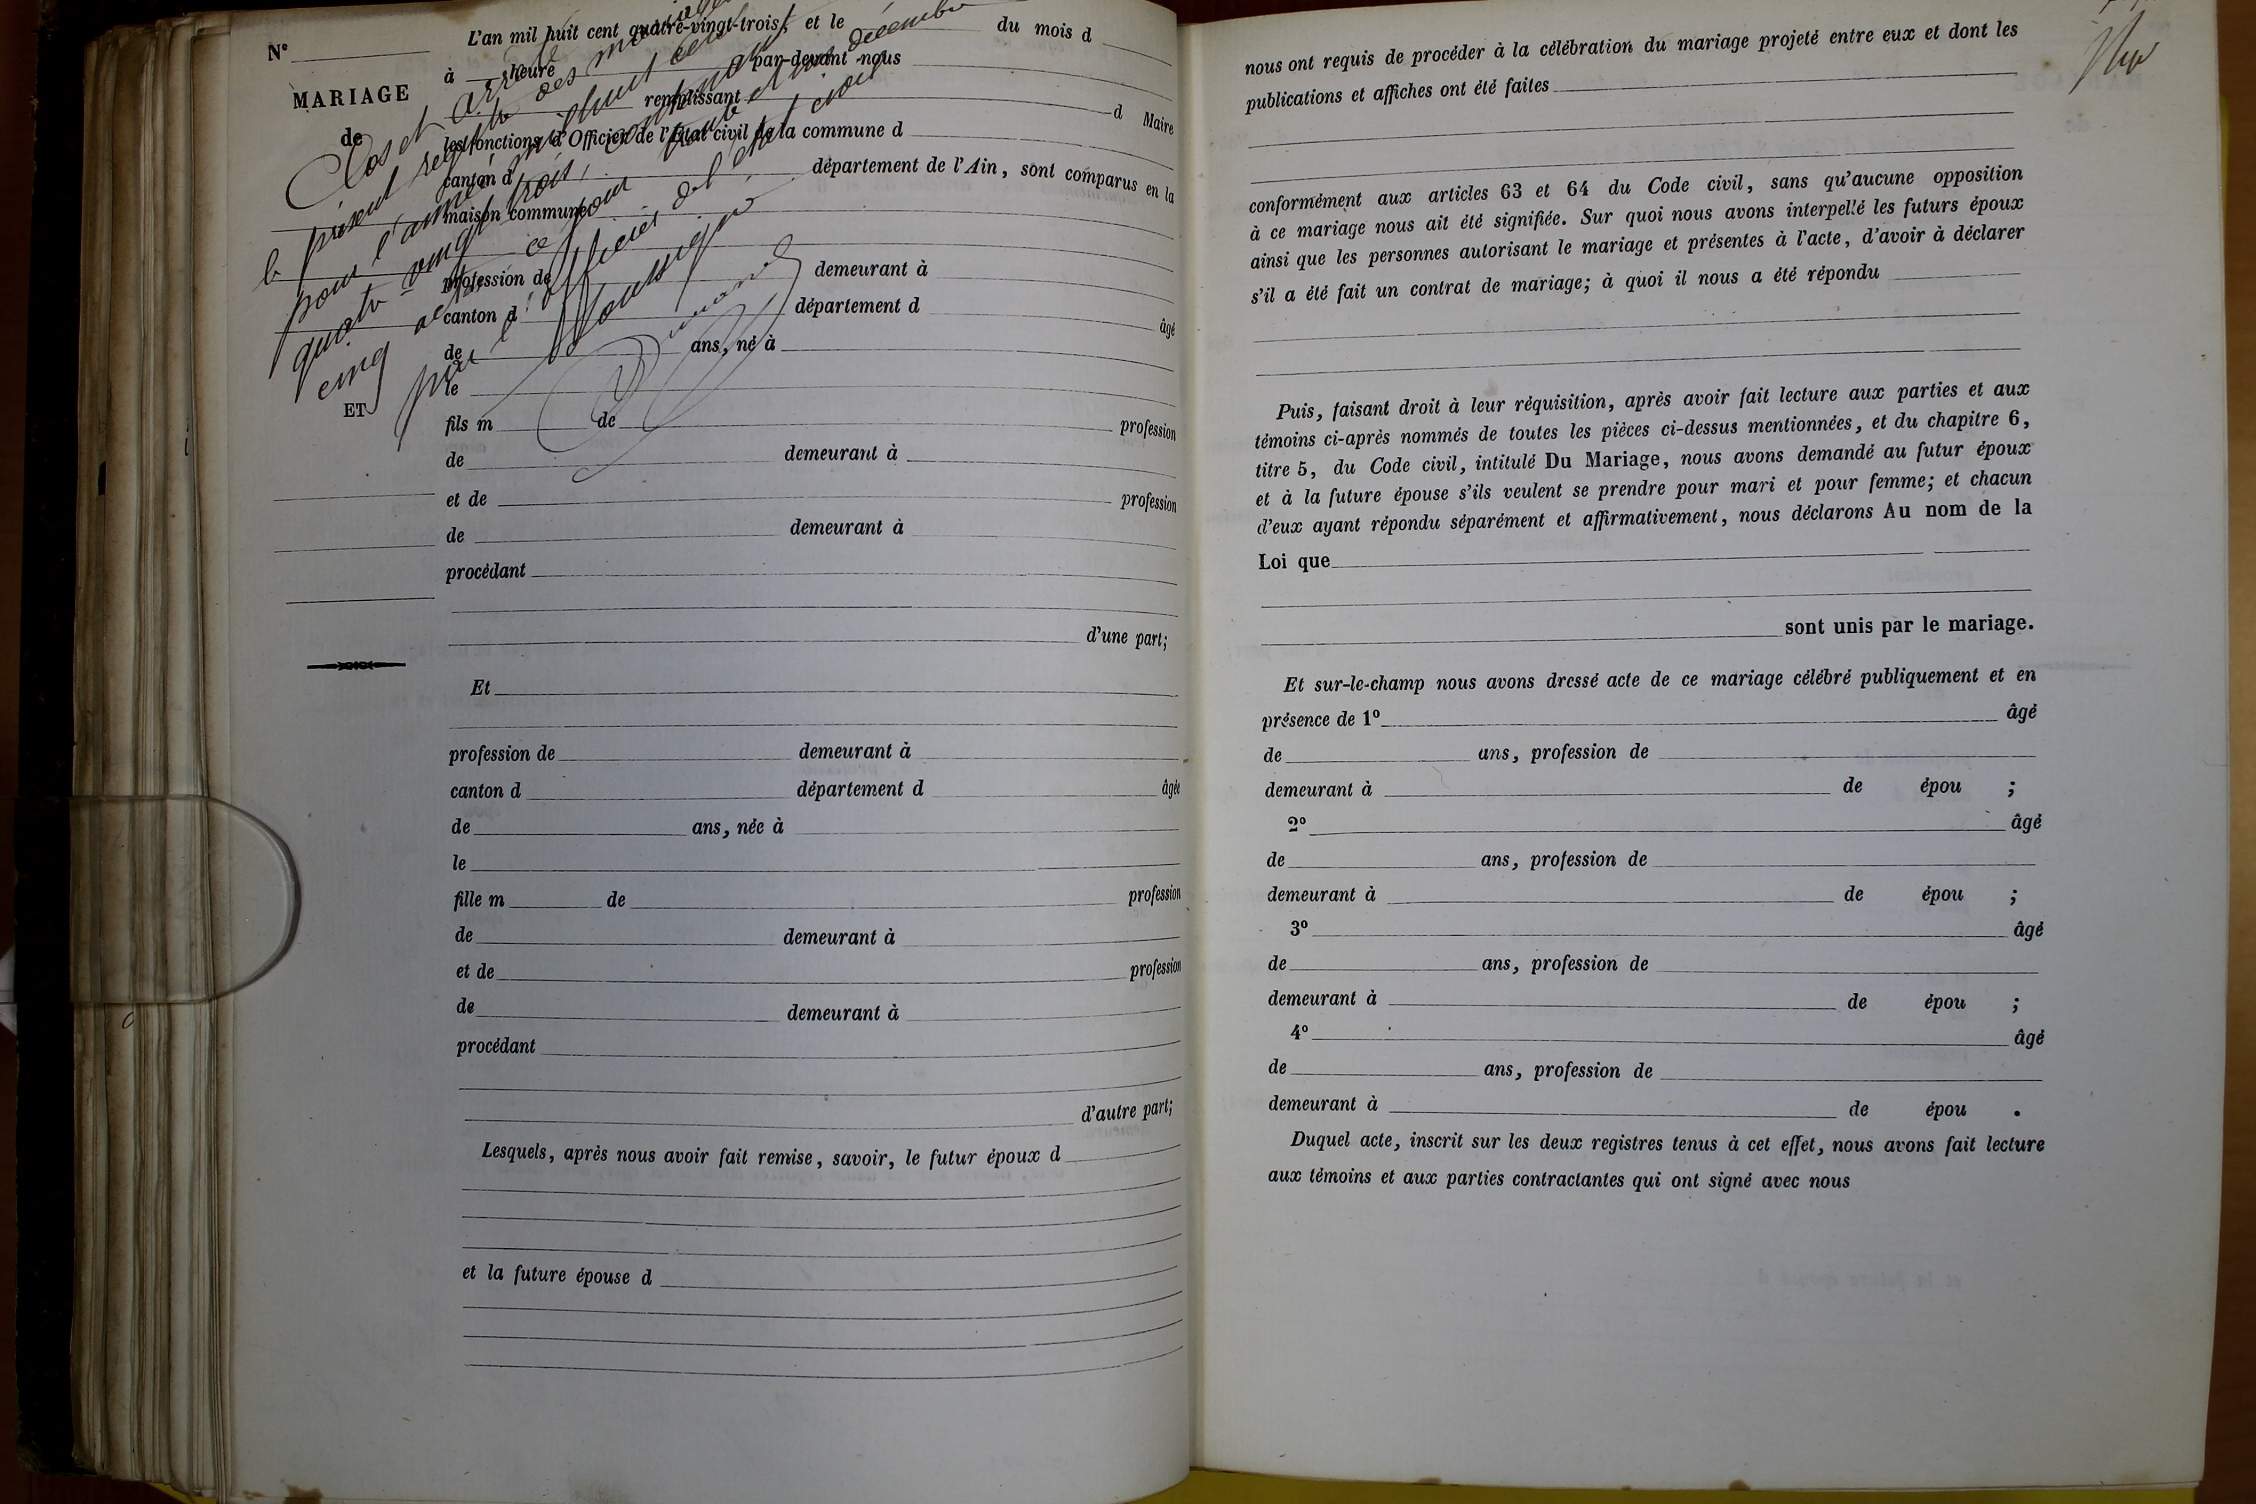 N°
MARIAGE
de
ET
L'an mil huit cent quatre-vingt-trois, et le du mois d
à heure par-devant nous
remplissant d Maire
les fonctions d'Officier de l'État civil de la commune d
canton d département de l'Ain, sont comparus en la
maison commune
profession de demeurant à
canton d département d âgé
de ans, né à
le
fils m de profession
de demeurant à
et de profession
de demeurant à
procédant
d'une part;
Et
profession de demeurant à
canton d département d âgée
de ans, née à
le
fille m de profession
de demeurant à
et de profession
de demeurant à
procédant
d'autre part;
Lesquels, après nous avoir fait remise, savoir, le futur époux d
et la future épouse d
Clos et arrêté
le présent registre des mariages
pour l'année mil huit cent
quatre vingt trois, contenant
cinq actes ce jour trente et un décembre
par l'officier de l'état civil
nous ont requis de procéder à la célébration du mariage projeté entre eux et dont les
publications et affiches ont été faites
conformément aux articles 63 et 64 du Code civil, sans qu'aucune opposition
à ce mariage nous ait été signifiée. Sur quoi nous avons interpellé les futurs époux
ainsi que les personnes autorisant le mariage et présentes à l'acte, d'avoir à déclarer
s'il a été fait un contrat de mariage; à quoi il nous a été répondu
Puis, faisant droit à leur réquisition, après avoir fait lecture aux parties et aux
témoins ci-après nommés de toutes les pièces ci-dessus mentionnées, et du chapitre 6,
titre 5, du Code civil, intitulé Du Mariage, nous avons demandé au futur époux
et à la future épouse s'ils veulent se prendre pour mari et pour femme; et chacun
d'eux ayant répondu séparément et affirmativement, nous déclarons Au nom de la
Loi que
sont unis par le mariage.
Et sur-le-champ nous avons dressé acte de ce mariage célébré publiquement et en
présence de 1° âgé
de ans, profession de
demeurant à de épou ;
2° âgé
de ans, profession de
demeurant à de épou ;
3° âgé
de ans, profession de
demeurant à de épou ;
4° âgé
de ans, profession de
demeurant à de épou .
Duquel acte, inscrit sur les deux registres tenus à cet effet, nous avons fait lecture
aux témoins et aux parties contractantes qui ont signé avec nous